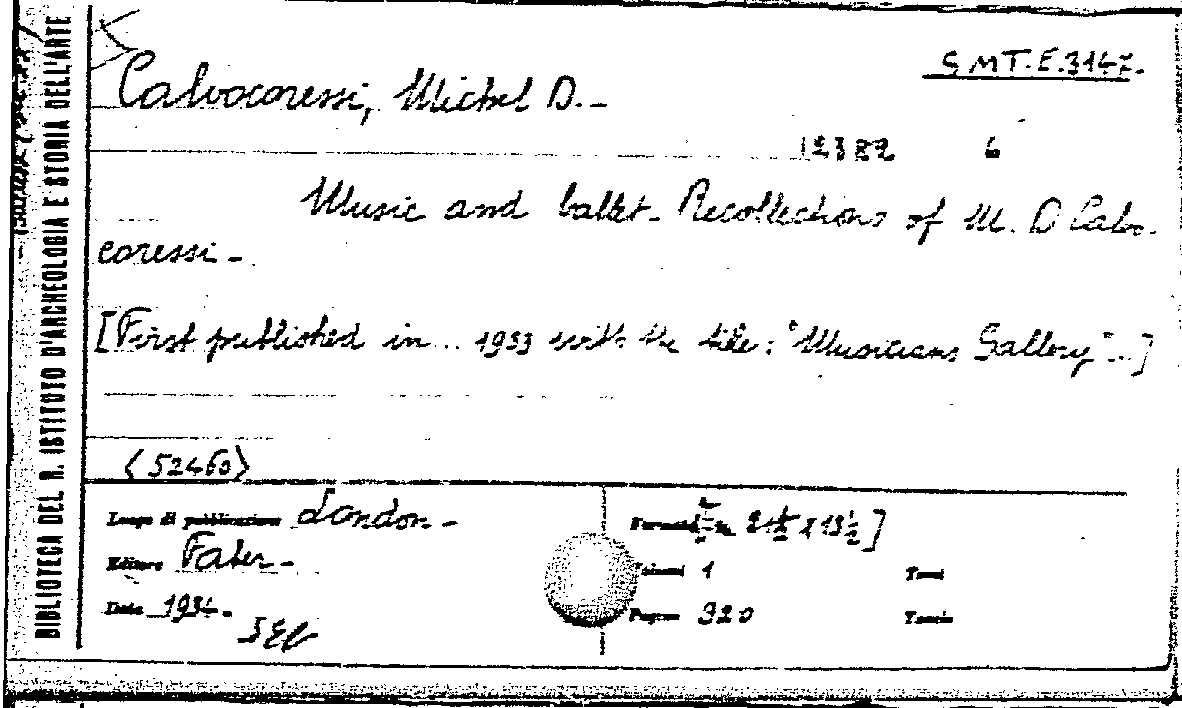 BIBLIOTECA DEL R. ISTITUTO D'ARCHEOLOGIA E STORIA DELL'ARTE
SMT.E.3147.
Calvocoressi, Michel D.-
12382 6
Music and ballet- Recollections of M. D Calvo-
coressi-
[First published in .. 1933 with the title: "Musicians Gallery"..]
<52460>
Luogo di pubblicazione London-
Formato 21½ x 13½]
Editore Faber-
Volumi 1 Tomi
Data 1934-
Pagine 320 Tavole